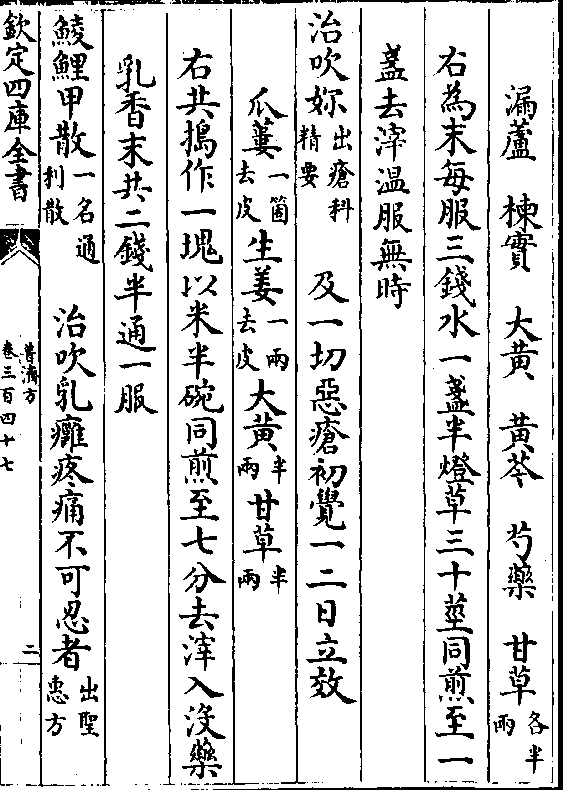 漏蘆 楝實 大黃 黃芩 芍藥 甘草各半兩
右為末每服三錢水一盞半燈草三十莖同煎至一
盞去滓温服無時
治吹妳出瘡科精要 及一切惡瘡初覺一二日立效
瓜蔞一箇去皮 生姜一兩去皮 大黃半兩 甘草半兩
右共搗作一塊以米半碗同煎至七分去滓入沒藥
乳香末共二錢半通一服
鯪鯉甲散一名通利散 治吹乳癰疼痛不可忍者出聖惠方
欽定四庫全書
普濟方
卷三百四十七
二